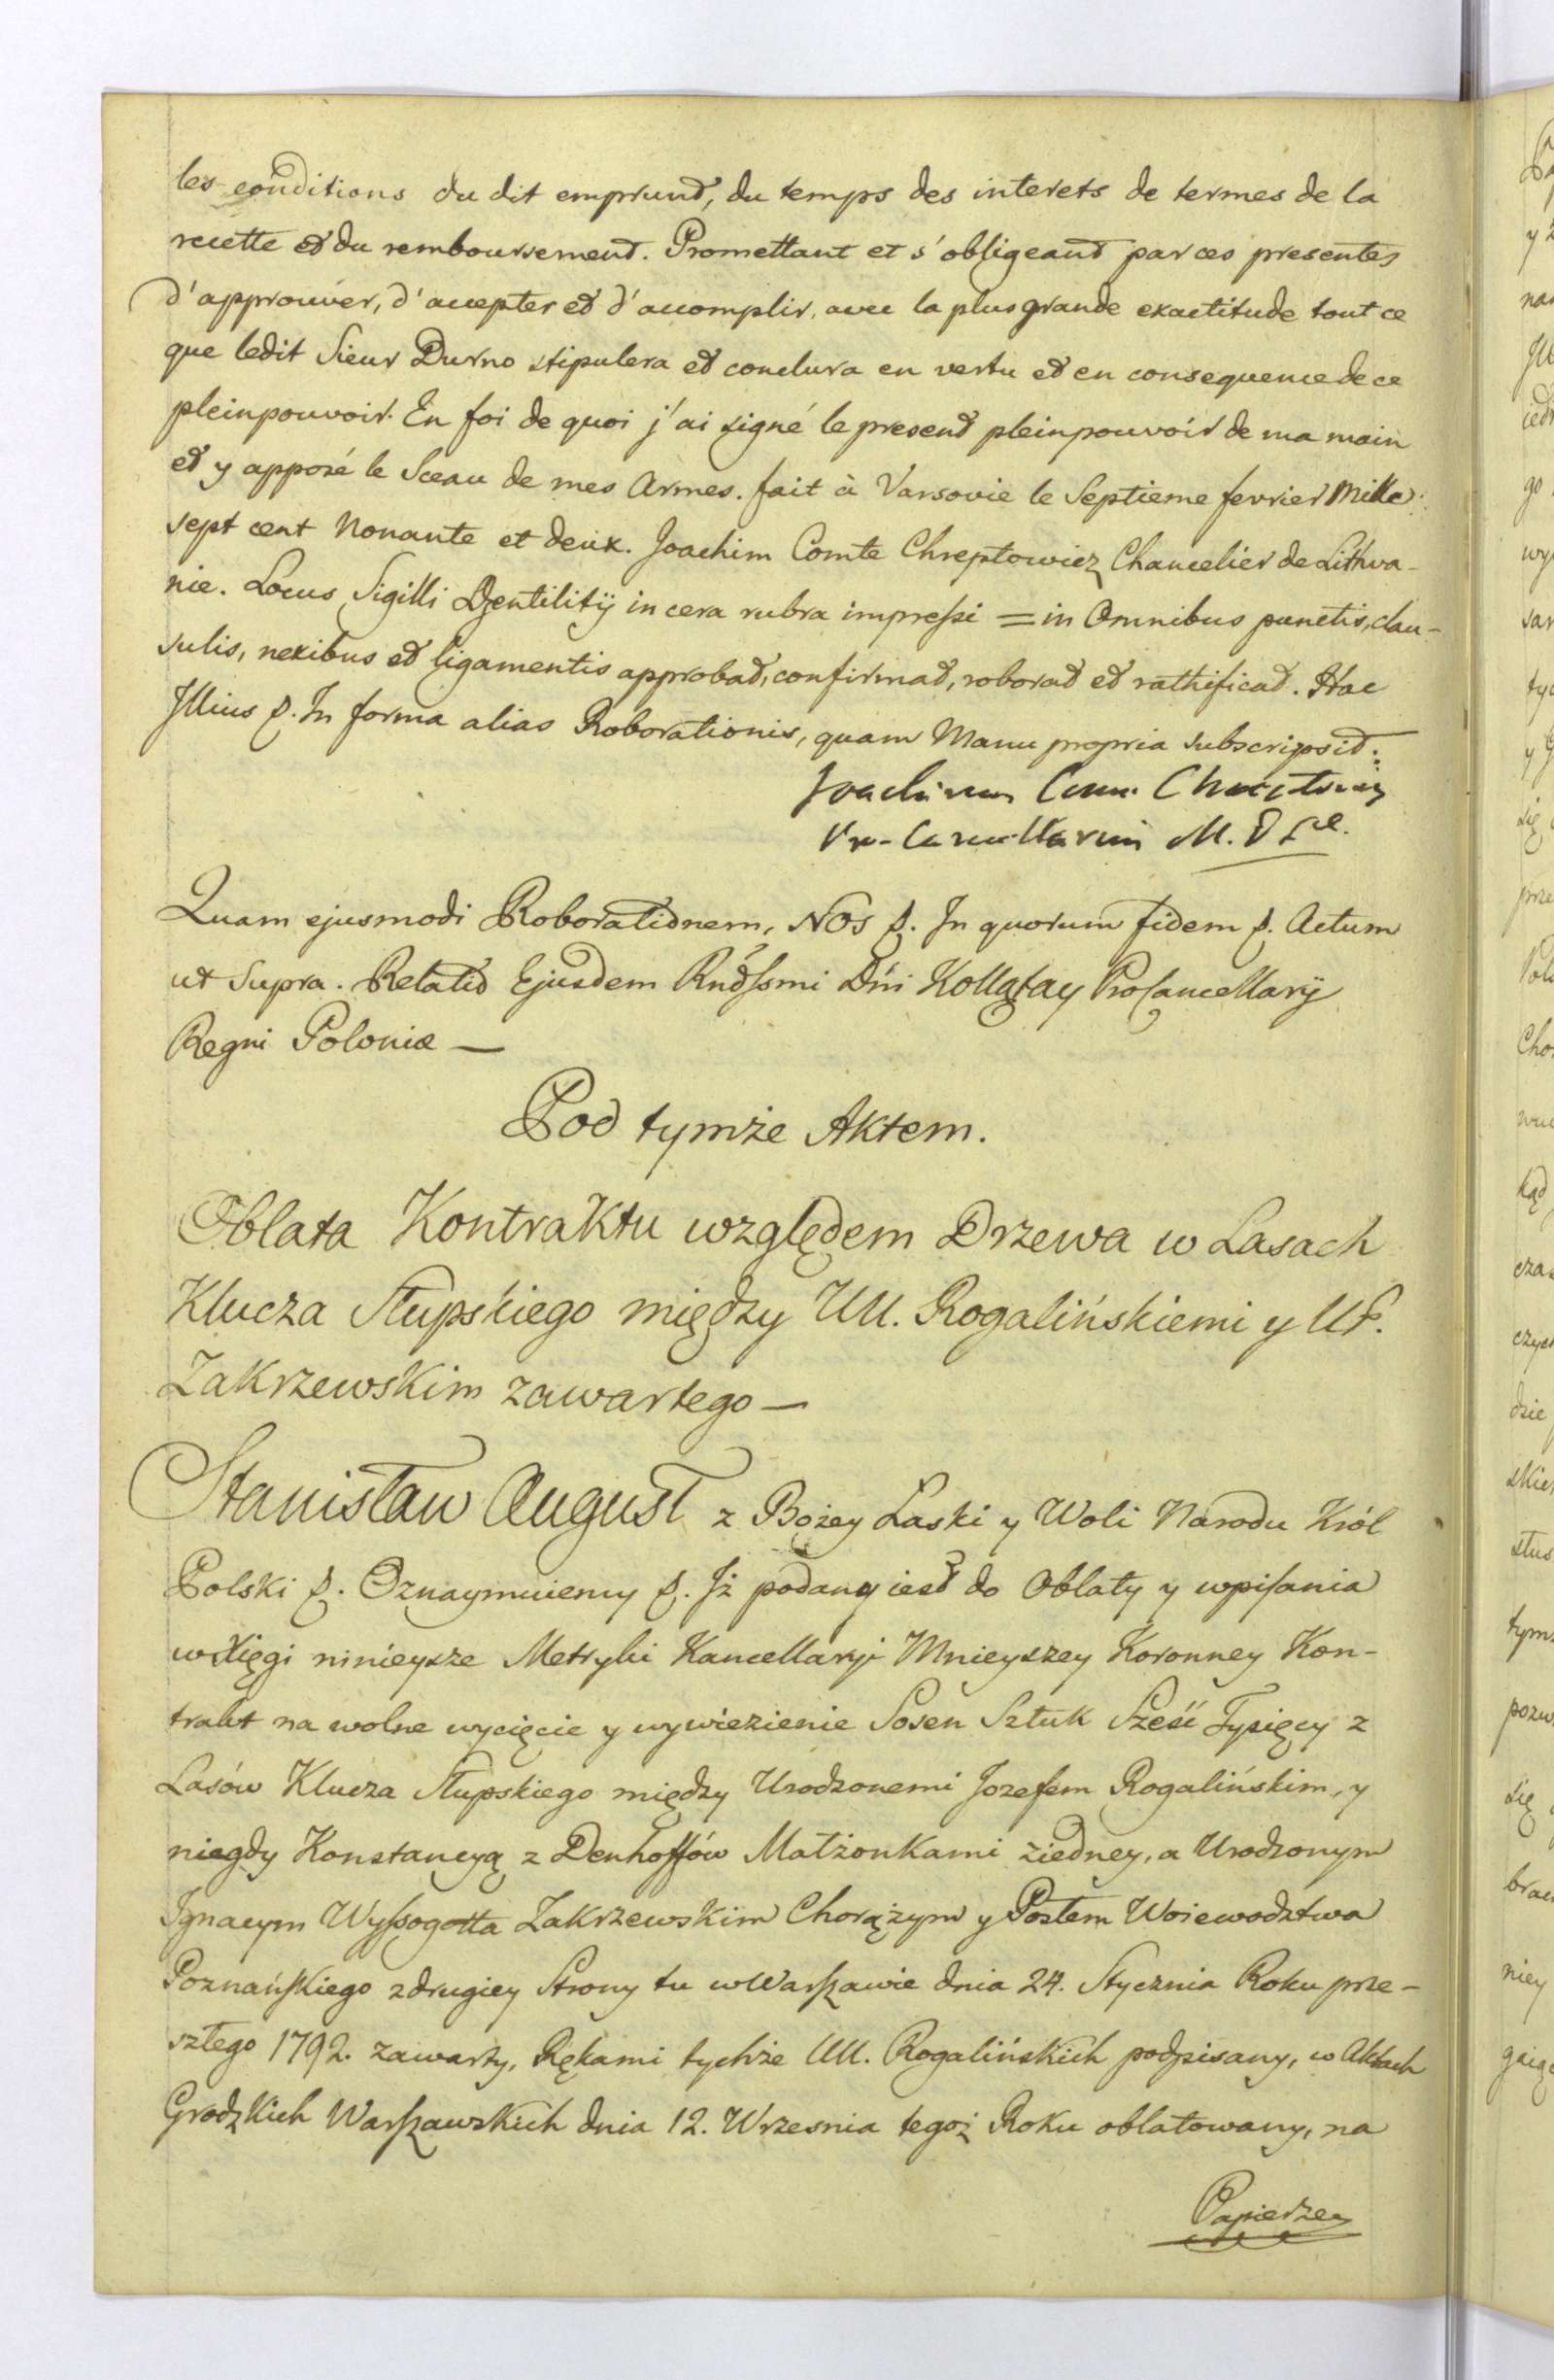 les conditions du dit emprunt, du temps des interets de termes de la
recette et du remboursement. Promettant et s'obligeant par ces presentes
d'approuver, d'accepter et d'accomplir, avec la plus grande exactitude tout ce
que ledit Sieur Durno stipulera et conclura en vertu et en consequence de ce
pleinpouvoir. En foi de quoi j'ai signé le present pleinpouvoir de ma main
et y apposé le Sceau de mes Armes. fait à Varsovie le Septieme fevrier Mille
sept cent Nonante et deux. Joachim Comte Chreptowicz Chancelier de Lithva-
nie. Locus Sigilli Gentilitÿ in cera rubra impressi = in Omnibus punctis, clau-
sulis, nexibus et ligamentis approbat, confirmat, roborat et rathificat. Hac
Illius p. In forma alias Roborationis, quam Manu propria subscripsit.
Joachimus Com. Chreptowicz
Pro-Cancellarius M. D L.
Quam ejusmodi Roborationem, NOS p. In quorum fidem p. Actum
ut Supra. Relatio Ejusdem Rndssmi Dni Kollątay ProCancellarÿ
Regni Poloniæ —
Pod tymże Aktem.
Oblata Kontraktu względem Drzewa w Lasach
Klucza Słupskiego między UU. Rogalińskiemi y UP.
Zakrzewskim zawartego —
Stanisław August z Bożey Łaski y Woli Narodu Król
Polski p. Oznaymuiemy p. Iż podany iest do Oblaty y wpisania
w Xięgi ninieysze Metryki Kancellaryi Mnieyszey Koronney Kon-
trakt na wolne wycięcie y wywiezienie Sosen Sztuk Sześć Tysięcy z
Lasów Klucza Słupskiego między Urodzonemi Jozefem Rogalińskim, y
niegdy Konstancyą z Denhoffów Małżonkami ziedney, a Urodzonym
Ignacym Wyssogotta Zakrzewskim Chorążym y Posłem Woiewodztwa
Poznańskiego zdrugiey Strony tu w Warszawie dnia 24. Stycznia Roku prze-
szłego 1792. zawarty, Rękami tychże UU. Rogalińskich podpisany, w Aktach
Grodzkich Warszawskich dnia 12. Wrzesnia tegoż Roku oblatowany, na
Papierze